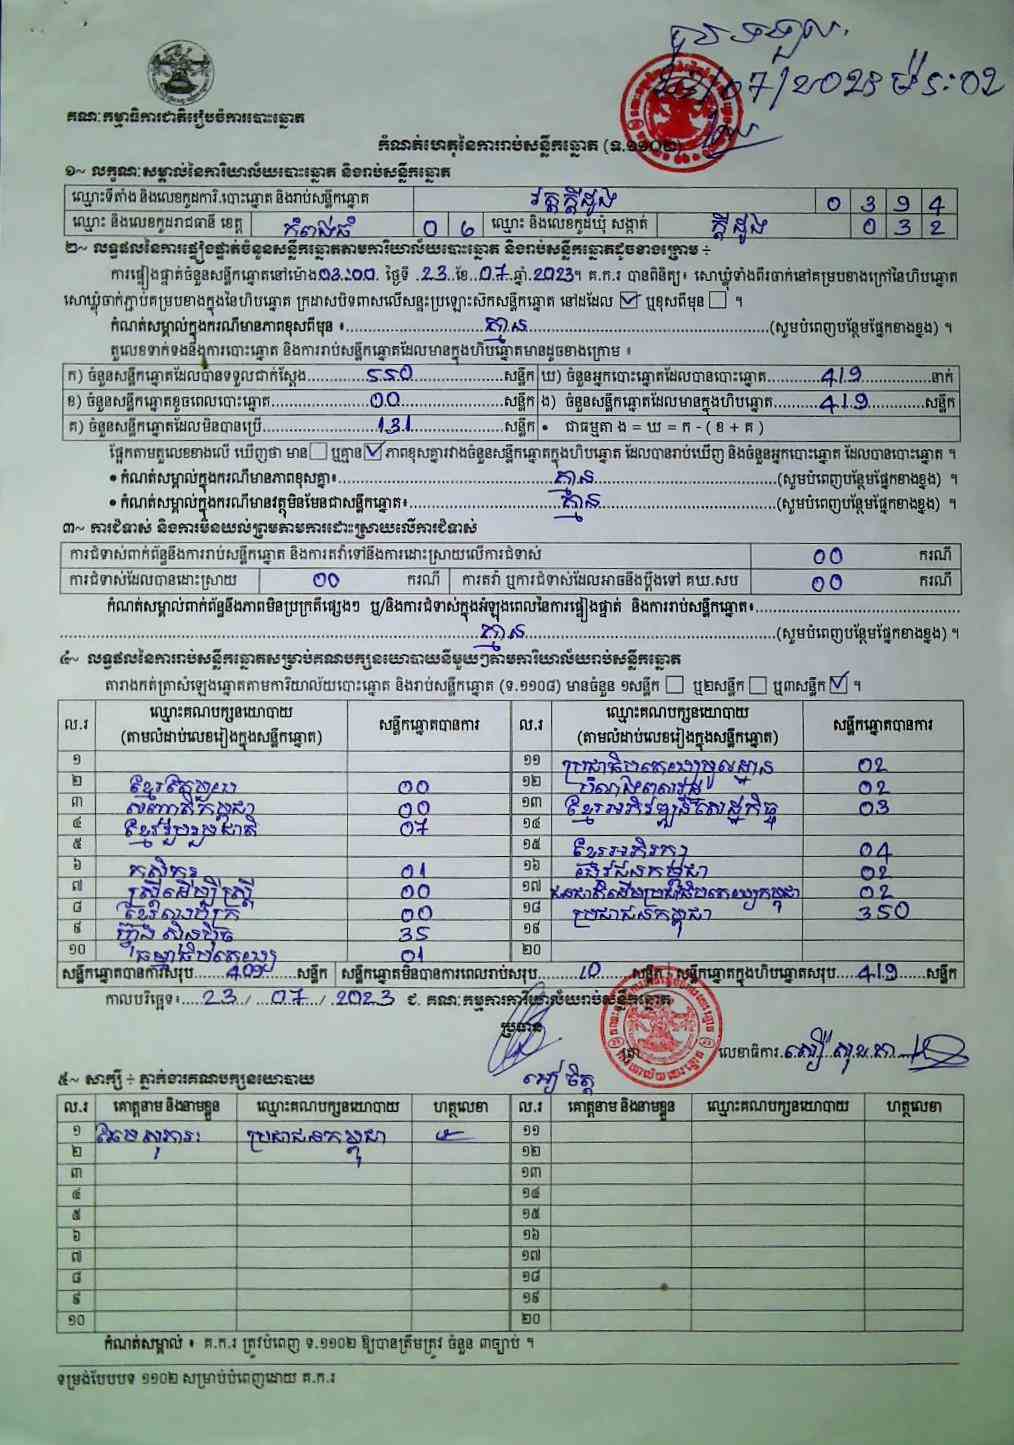 គណៈកម្មាធិការជាតិរៀបចំការបោះឆ្នោត
កំណត់ហេតុនៃការរាប់សន្លឹកឆ្នោត (ទ.១១០២)
១~ លក្ខណៈសម្គាល់នៃការិយាល័យបោះឆ្នោត និងរាប់សន្លឹកឆ្នោត
ឈ្មោះទីតាំង និងលេខកូដការិ.បោះឆ្នោត និងរាប់សន្លឹកឆ្នោត វត្តក្តីដូង 0 3 9 4
ឈ្មោះ និងលេខកូដរាជធានី ខេត្ត កំពង់ធំ 0 6 ឈ្មោះ និងលេខកូដឃុំ សង្កាត់ ក្តីដូង 0 3 2
២~ លទ្ធផលនៃការផ្ទៀងផ្ទាត់ចំនួនសន្លឹកឆ្នោតតាមការិយាល័យបោះឆ្នោត និងរាប់សន្លឹកឆ្នោតដូចខាងក្រោម ÷
ការផ្ទៀងផ្ទាត់ចំនួនសន្លឹកឆ្នោតនៅម៉ោង03:00. ថ្ងៃទី .23..ខែ..07.ឆ្នាំ.2023។ គ.ក.រ បានពិនិត្យ៖ សោឃ្លុំទាំងពីរចាក់នៅគម្របខាងក្រៅនៃហិបឆ្នោត
សោឃ្លុំចាក់ភ្ជាប់គម្របខាងក្នុងនៃហិបឆ្នោត ក្រដាសបិទពាសលើសន្ទះប្រឡោះសិកសន្លឹកឆ្នោត នៅដដែល ☑ ឬខុសពីមុន ☐ ។
កំណត់សម្គាល់ក្នុងករណីមានភាពខុសពីមុន ៖ គ្មាន (សូមបំពេញបន្ថែមផ្នែកខាងខ្នង) ។
តួលេខទាក់ទងនឹងការបោះឆ្នោត និងការរាប់សន្លឹកឆ្នោតដែលមានក្នុងហិបឆ្នោតមានដូចខាងក្រោម ៖
ក) ចំនួនសន្លឹកឆ្នោតដែលបានទទួលជាក់ស្តែង 550 សន្លឹក ឃ) ចំនួនអ្នកបោះឆ្នោតដែលបានបោះឆ្នោត 419 នាក់
ខ) ចំនួនសន្លឹកឆ្នោតខូចពេលបោះឆ្នោត 00 សន្លឹក ង) ចំនួនសន្លឹកឆ្នោតដែលមានក្នុងហិបឆ្នោត 419 សន្លឹក
គ) ចំនួនសន្លឹកឆ្នោតដែលមិនបានប្រើ 131 សន្លឹក • ជាធម្មតា ង = ឃ = ក - ( ខ + គ )
ផ្អែកតាមតួលេខខាងលើ ឃើញថា មាន ☐ ឬគ្មាន ☑ ភាពខុសគ្នារវាងចំនួនសន្លឹកឆ្នោតក្នុងហិបឆ្នោត ដែលបានរាប់ឃើញ និងចំនួនអ្នកបោះឆ្នោត ដែលបានបោះឆ្នោត ។
• កំណត់សម្គាល់ក្នុងករណីមានភាពខុសគ្នា៖ គ្មាន (សូមបំពេញបន្ថែមផ្នែកខាងខ្នង) ។
• កំណត់សម្គាល់ក្នុងករណីមានវត្ថុមិនមែនជាសន្លឹកឆ្នោត៖ គ្មាន (សូមបំពេញបន្ថែមផ្នែកខាងខ្នង) ។
៣~ ការជំទាស់ និងការមិនយល់ព្រមតាមការដោះស្រាយលើការជំទាស់
ការជំទាស់ពាក់ព័ន្ធនឹងការរាប់សន្លឹកឆ្នោត និងការតវ៉ាទៅនឹងការដោះស្រាយលើការជំទាស់ 00 ករណី
ការជំទាស់ដែលបានដោះស្រាយ 00 ករណី ការតវ៉ា ឬការជំទាស់ដែលអាចនឹងប្តឹងទៅ គឃ.សប 00 ករណី
កំណត់សម្គាល់ពាក់ព័ន្ធនឹងភាពមិនប្រក្រតីផ្សេងៗ ឬ/និងការជំទាស់ក្នុងអំឡុងពេលនៃការផ្ទៀងផ្ទាត់ និងការរាប់សន្លឹកឆ្នោត៖
គ្មាន (សូមបំពេញបន្ថែមផ្នែកខាងខ្នង) ។
៤~ លទ្ធផលនៃការរាប់សន្លឹកឆ្នោតសម្រាប់គណបក្សនយោបាយនីមួយៗតាមការិយាល័យរាប់សន្លឹកឆ្នោត
តារាងកត់ត្រាសំឡេងឆ្នោតតាមការិយាល័យបោះឆ្នោត និងរាប់សន្លឹកឆ្នោត (ទ.១១០៨) មានចំនួន ១សន្លឹក ☐ ឬ២សន្លឹក ☐ ឬ៣សន្លឹក ☑ ។
ល.រ ឈ្មោះគណបក្សនយោបាយ (តាមលំដាប់លេខរៀងក្នុងសន្លឹកឆ្នោត) សន្លឹកឆ្នោតបានការ ល.រ ឈ្មោះគណបក្សនយោបាយ (តាមលំដាប់លេខរៀងក្នុងសន្លឹកឆ្នោត) សន្លឹកឆ្នោតបានការ
១ ១១ ប្រជាធិបតេយ្យមូលដ្ឋាន 02
២ 00 ១២ 02
៣ សញ្ជាតិកម្ពុជា 00 ១៣ ខ្មែរអភិវឌ្ឍន៍សេដ្ឋកិច្ច 03
៤ ខ្មែររួបរួមជាតិ 07 ១៤
៥ ១៥ ខ្មែរអភិរក្ស 04
៦ កសិករ 01 ១៦ 02
៧ ស្ត្រីដើម្បីស្ត្រី 00 ១៧ ជនជាតិដើមប្រជាធិបតេយ្យកម្ពុជា 02
៨ 00 ១៨ ប្រជាជនកម្ពុជា 350
៩ ហ៊្វុនស៊ិនប៉ិច 35 ១៩
១០ ធម្មាធិបតេយ្យ 01 ២០
សន្លឹកឆ្នោតបានការសរុប 409 សន្លឹក សន្លឹកឆ្នោតមិនបានការពេលរាប់សរុប 10 សន្លឹក សន្លឹកឆ្នោតក្នុងហិបឆ្នោតសរុប 419 សន្លឹក
កាលបរិច្ឆេទ៖ 23 / 07 / 2023 ជ. គណៈកម្មការការិយាល័យរាប់សន្លឹកឆ្នោត
ប្រធាន
លេខាធិការ
៥~ សាក្សី ÷ ភ្នាក់ងារគណបក្សនយោបាយ
ល.រ គោត្តនាម និងនាមខ្លួន ឈ្មោះគណបក្សនយោបាយ ហត្ថលេខា ល.រ គោត្តនាម និងនាមខ្លួន ឈ្មោះគណបក្សនយោបាយ ហត្ថលេខា
១ ប្រជាជនកម្ពុជា ១១
២ ១២
៣ ១៣
៤ ១៤
៥ ១៥
៦ ១៦
៧ ១៧
៨ ១៨
៩ ១៩
១០ ២០
កំណត់សម្គាល់ ៖ គ.ក.រ ត្រូវបំពេញ ទ.១១០២ ឱ្យបានត្រឹមត្រូវ ចំនួន ៣ច្បាប់ ។
ទម្រង់បែបបទ ១១០២ សម្រាប់បំពេញដោយ គ.ក.រ